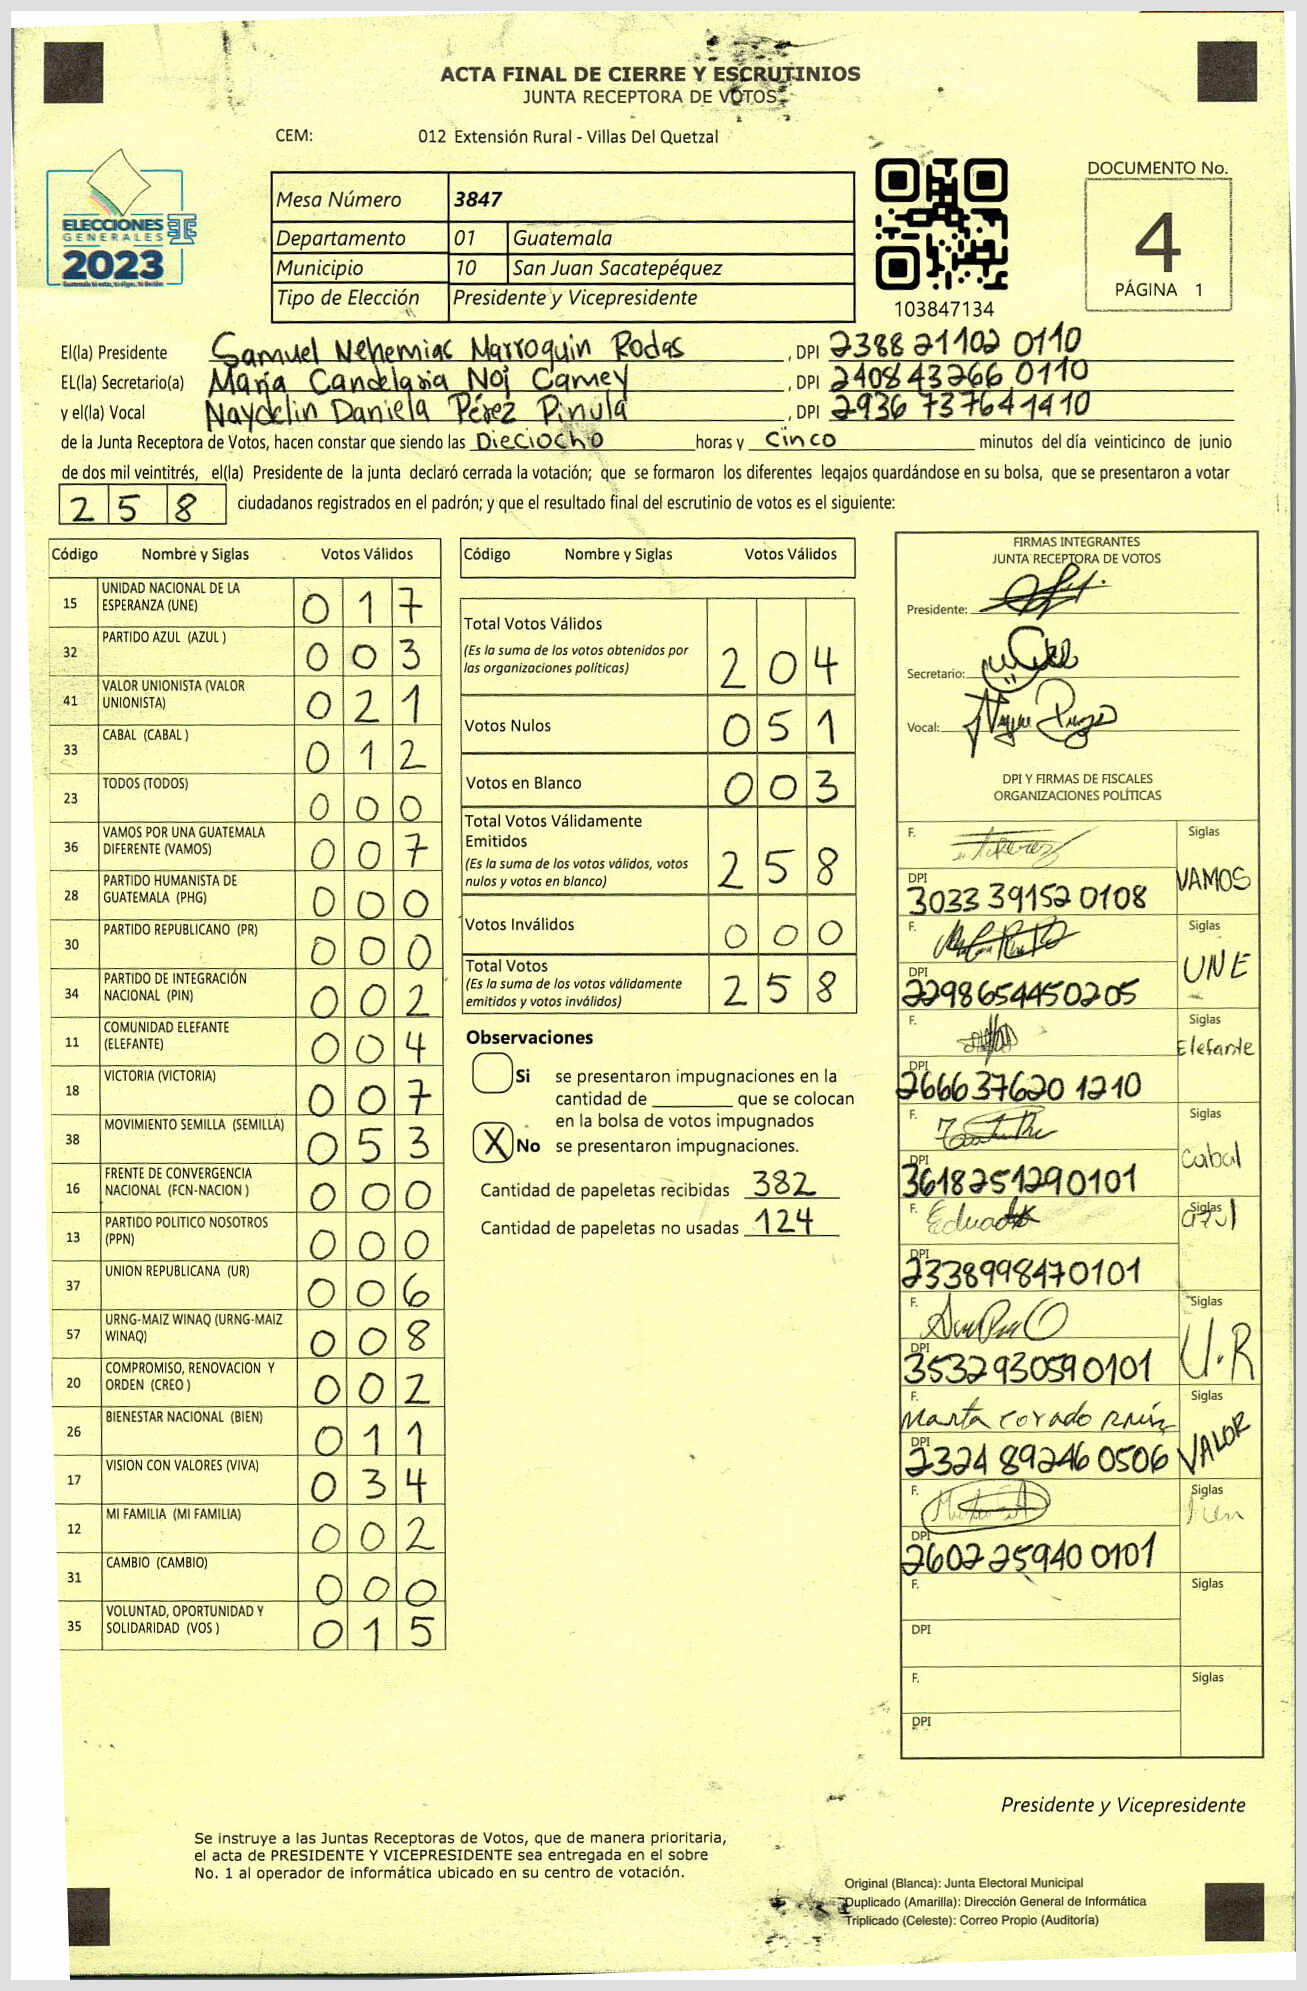 ACTA FINAL DE CIERRE Y ESCRUTINIOS
JUNTA RECEPTORA DE VOTOS
CEM: 012 Extensión Rural - Villas Del Quetzal
ELECCIONES
GENERALES
2023
Mesa Número 3847
Departamento 01 Guatemala
Municipio 10 San Juan Sacatepéquez
Tipo de Elección Presidente y Vicepresidente
103847134
DOCUMENTO No.
4
PÁGINA 1
El(la) Presidente Samuel Nehemias Marroquin Rodas , DPI 2388 21102 0110
EL(la) Secretario(a) María Candelaria Noj Camey , DPI 2408 43266 0110
y el(la) Vocal Naydelin Daniela Pérez Pinula , DPI 2936 73764 1410
de la Junta Receptora de Votos, hacen constar que siendo las Dieciocho horas y cinco minutos del día veinticinco de junio
de dos mil veintitrés, el(la) Presidente de la junta declaró cerrada la votación; que se formaron los diferentes legajos guardándose en su bolsa, que se presentaron a votar
258 ciudadanos registrados en el padrón; y que el resultado final del escrutinio de votos es el siguiente:
Código Nombre y Siglas Votos Válidos
15 UNIDAD NACIONAL DE LA ESPERANZA (UNE) 017
32 PARTIDO AZUL (AZUL ) 003
41 VALOR UNIONISTA (VALOR UNIONISTA) 021
33 CABAL (CABAL ) 012
23 TODOS (TODOS) 000
36 VAMOS POR UNA GUATEMALA DIFERENTE (VAMOS) 007
28 PARTIDO HUMANISTA DE GUATEMALA (PHG) 000
30 PARTIDO REPUBLICANO (PR) 000
34 PARTIDO DE INTEGRACIÓN NACIONAL (PIN) 002
11 COMUNIDAD ELEFANTE (ELEFANTE) 004
18 VICTORIA (VICTORIA) 007
38 MOVIMIENTO SEMILLA (SEMILLA) 053
16 FRENTE DE CONVERGENCIA NACIONAL (FCN-NACION ) 000
13 PARTIDO POLITICO NOSOTROS (PPN) 000
37 UNION REPUBLICANA (UR) 006
57 URNG-MAIZ WINAQ (URNG-MAIZ WINAQ) 008
20 COMPROMISO, RENOVACION Y ORDEN (CREO ) 002
26 BIENESTAR NACIONAL (BIEN) 011
17 VISION CON VALORES (VIVA) 034
12 MI FAMILIA (MI FAMILIA) 002
31 CAMBIO (CAMBIO) 000
35 VOLUNTAD, OPORTUNIDAD Y SOLIDARIDAD (VOS ) 015
Código Nombre y Siglas Votos Válidos
Total Votos Válidos
(Es la suma de los votos obtenidos por
las organizaciones politicas) 204
Votos Nulos 051
Votos en Blanco 003
Total Votos Válidamente
Emitidos
(Es la suma de los votos válidos, votos
nulos y votos en blanco) 258
Votos Inválidos 000
Total Votos
(Es la suma de los votos válidamente
emitidos y votos inválidos) 258
Observaciones
Si se presentaron impugnaciones en la
cantidad de ________ que se colocan
en la bolsa de votos impugnados
X No se presentaron impugnaciones.
Cantidad de papeletas recibidas 382
Cantidad de papeletas no usadas 124
FIRMAS INTEGRANTES
JUNTA RECEPTORA DE VOTOS
Presidente:
Secretario:
Vocal:
DPI Y FIRMAS DE FISCALES
ORGANIZACIONES POLÍTICAS
F. Siglas VAMOS
DPI 3033 39152 0108
F. Siglas UNE
DPI 2298654450205
F. Siglas Elefante
DPI 2666 37620 1210
F. Siglas Cabal
DPI 3618251290101
F. Eduardo Siglas azul
DPI 2338998470101
F. Siglas U.R
DPI 3532930590101
F. Marta Corado Ruíz Siglas VALOR
DPI 2324 89246 0506
F. Siglas bien
DPI 2602 25940 0101
F. Siglas
DPI
F. Siglas
DPI
Presidente y Vicepresidente
Se instruye a las Juntas Receptoras de Votos, que de manera prioritaria,
el acta de PRESIDENTE Y VICEPRESIDENTE sea entregada en el sobre
No. 1 al operador de informática ubicado en su centro de votación.
Original (Blanca): Junta Electoral Municipal
Duplicado (Amarilla): Dirección General de Informática
Triplicado (Celeste): Correo Propio (Auditoría)